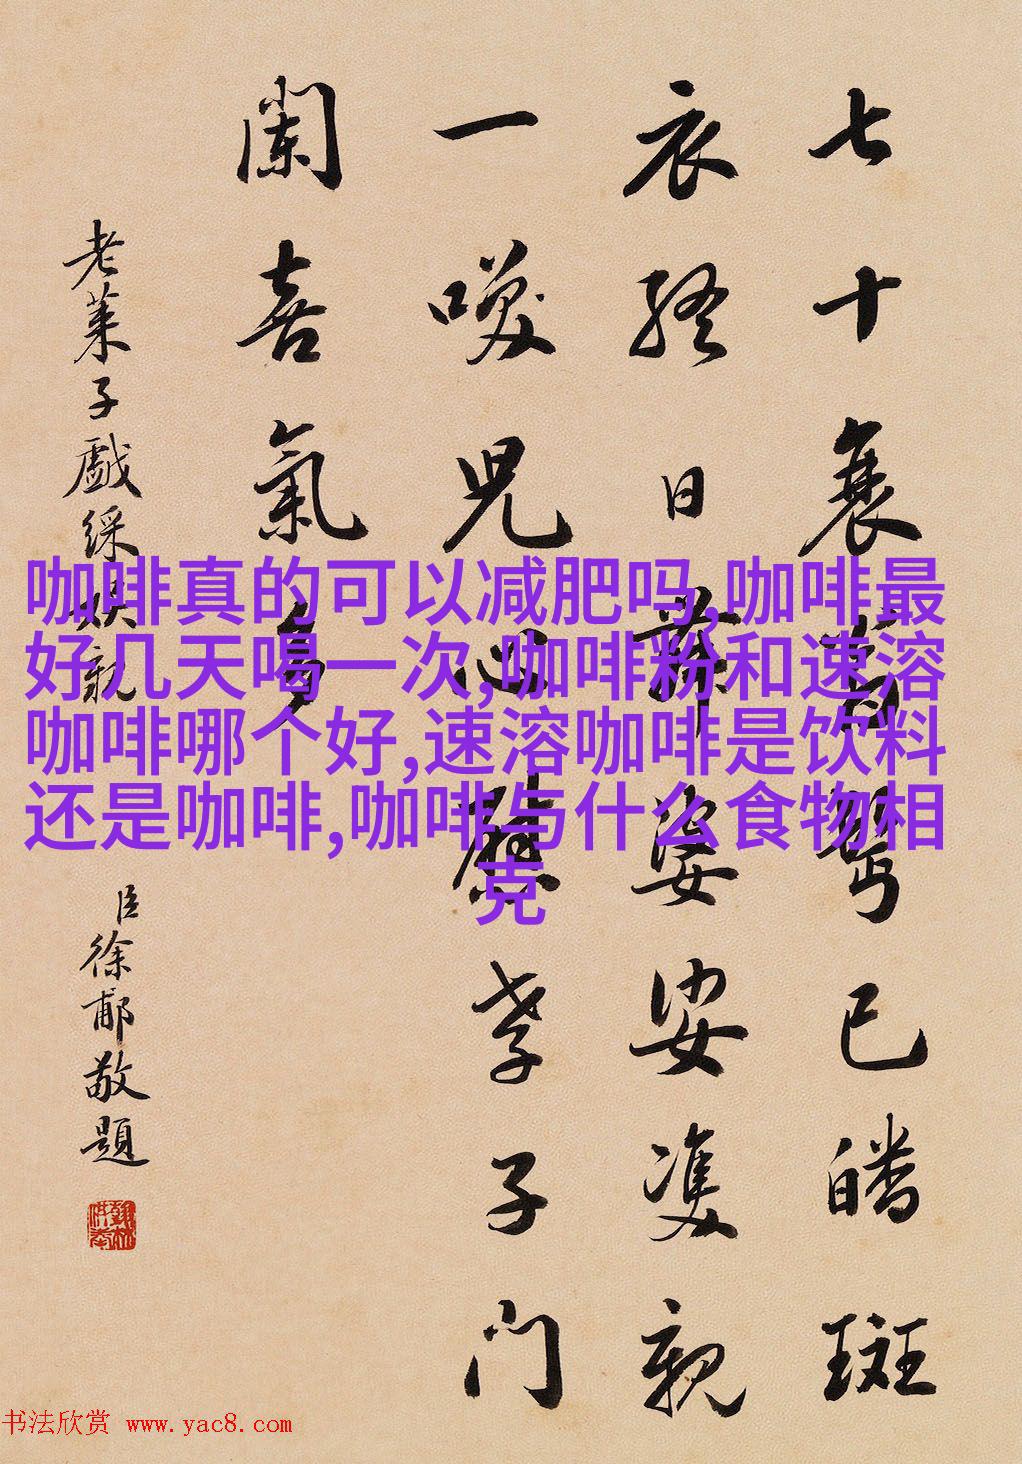 七十衰已皤斑
衣終日舞婆娑雙親
一喚兒心孝子門
闌喜氣多
老萊子戲綵娛親
臣徐郙敬題
咖啡真的可以减肥吗,咖啡最
好几天喝一次,咖啡粉和速溶
咖啡哪个好,速溶咖啡是饮料
还是咖啡,咖啡与什么食物相
克
书法欣赏 www.yac8.com